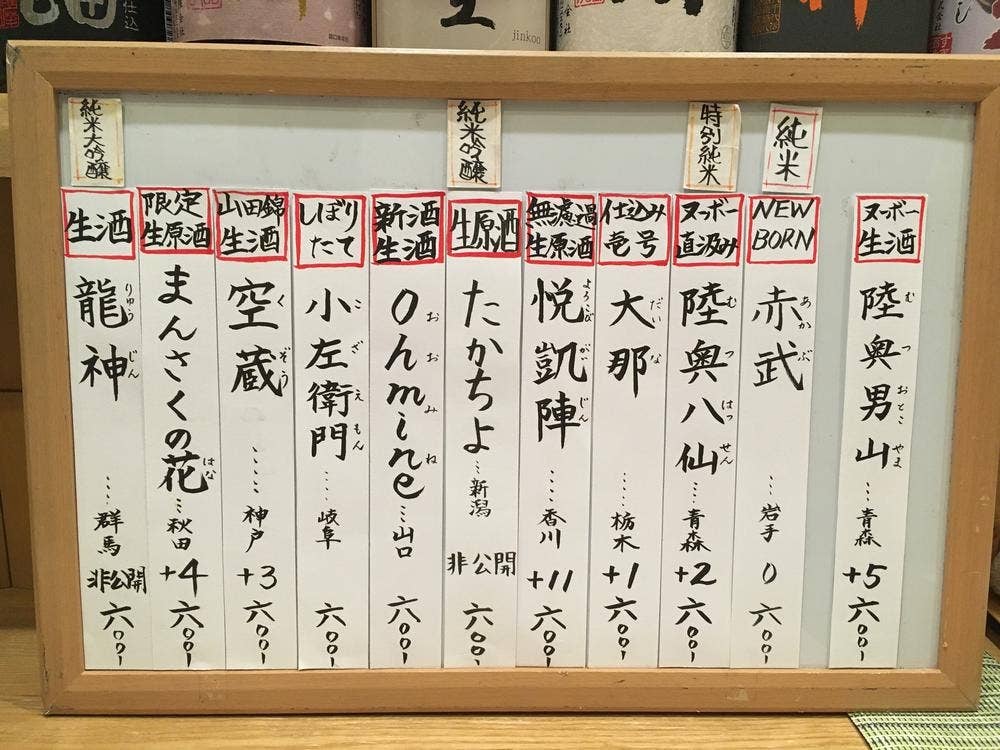 jinkoo
純米
ヌーボー
生酒
陸奥男山
むつおとこやま
……青森
+5
六〇〇
NEW
BORN
赤武
あかぶ
…岩手
0
六〇〇
特別純米
ヌーボー
直汲み
陸奥八仙
むつはっせん
……青森
+2
六〇〇
仕込み
壱号
大那
だいな
……栃木
+1
六〇〇
無濾過
生原酒
悦凱陣
よろこびがいじん
……香川
+11
六〇〇
純米吟醸
生原酒
たかちよ
…新潟
非公開
六〇〇
新酒
生酒
Ohmine
おおみね
…山口
六〇〇
しぼり
たて
小左衛門
こざえもん
……岐阜
六〇〇
山田錦
生酒
空蔵
くぞう
……神戸
+3
六〇〇
限定
生原酒
まんさくの花
はな
…秋田
+4
六〇〇
純米大吟醸
生酒
龍神
りゅうじん
……群馬
非公開
六〇〇